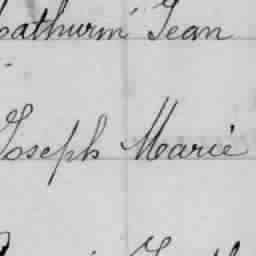 Mathurin Jean
Joseph Marie